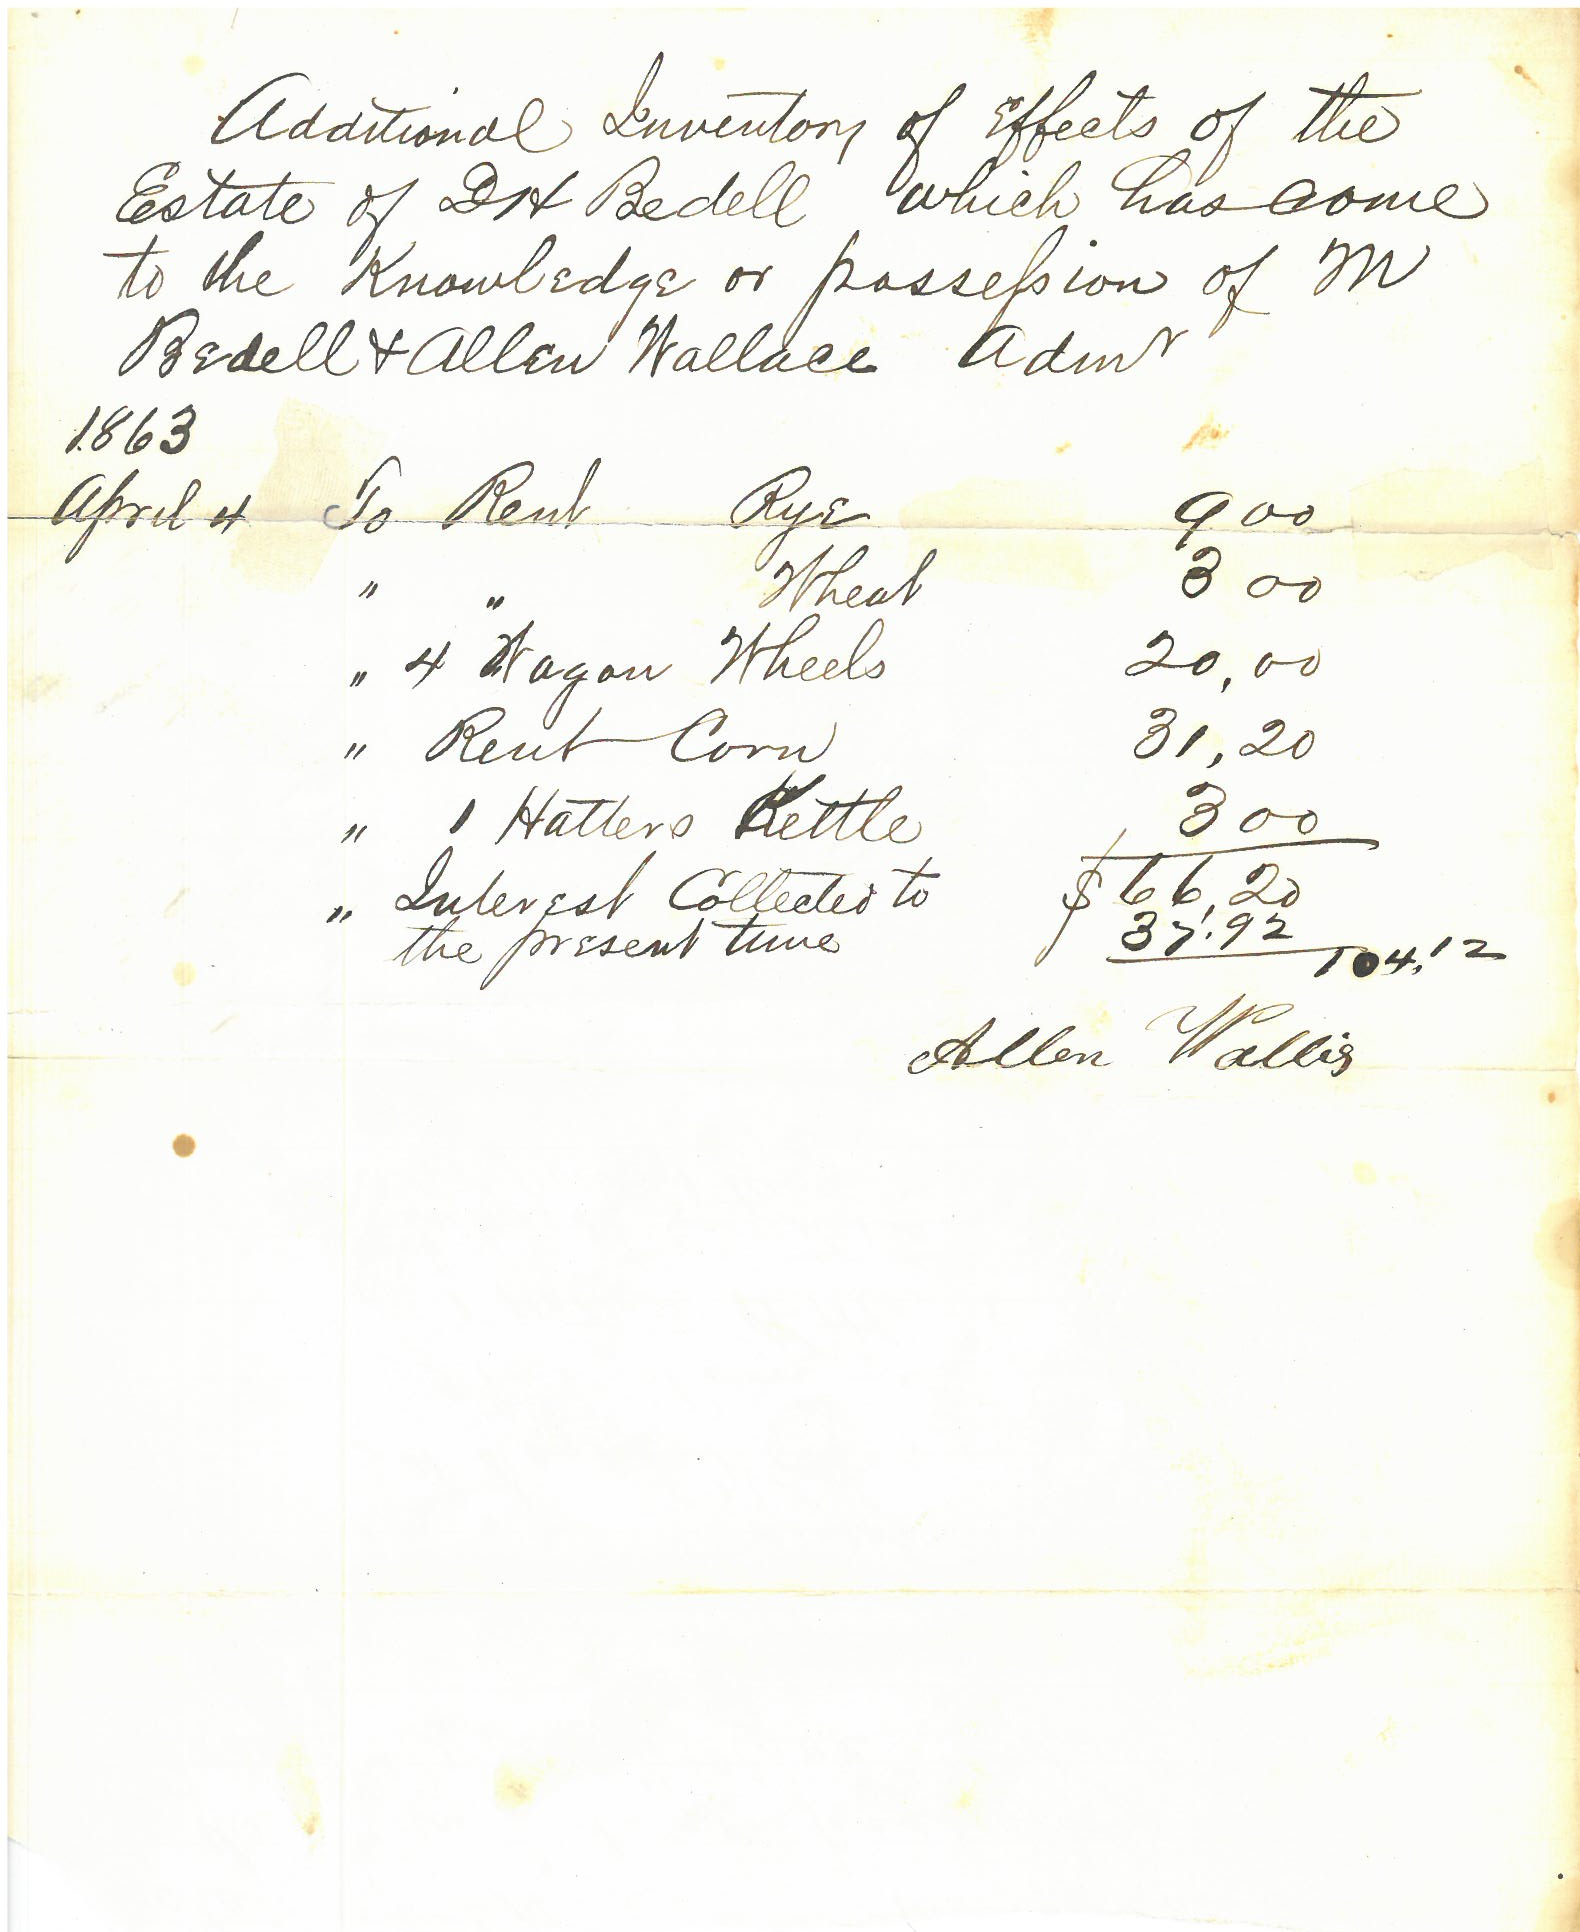 Additional Inventory of Effects of the
Estate of D H Bedell which has come
to the Knowledge or possession of M
Bedell & Allen Wallace Admr
1863
April 4 To Rent Rye 9 00
" " Wheat 3 00
" 4 Wagon Wheels 20,00
" Rent Corn 31,20
" 1 Hatters Kettle 3 00
" Interest Collected to $66,20
the present time 37.92 104.12
Allen Wallis